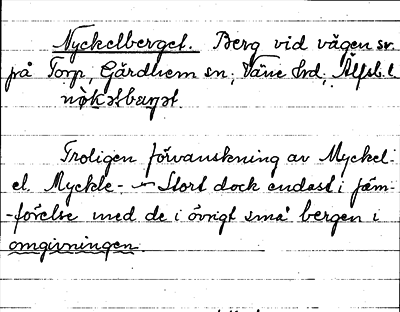 Nyckelberget. Berg vid vägen sv.
på Torp, Gärdhem sn; Väne hd; Älfsb. l
Troligen förvanskning av Myckel-
el. Myckle- — Stort dock endast i jäm-
-förelse med de i övrigt små bergen i
omgivningen.